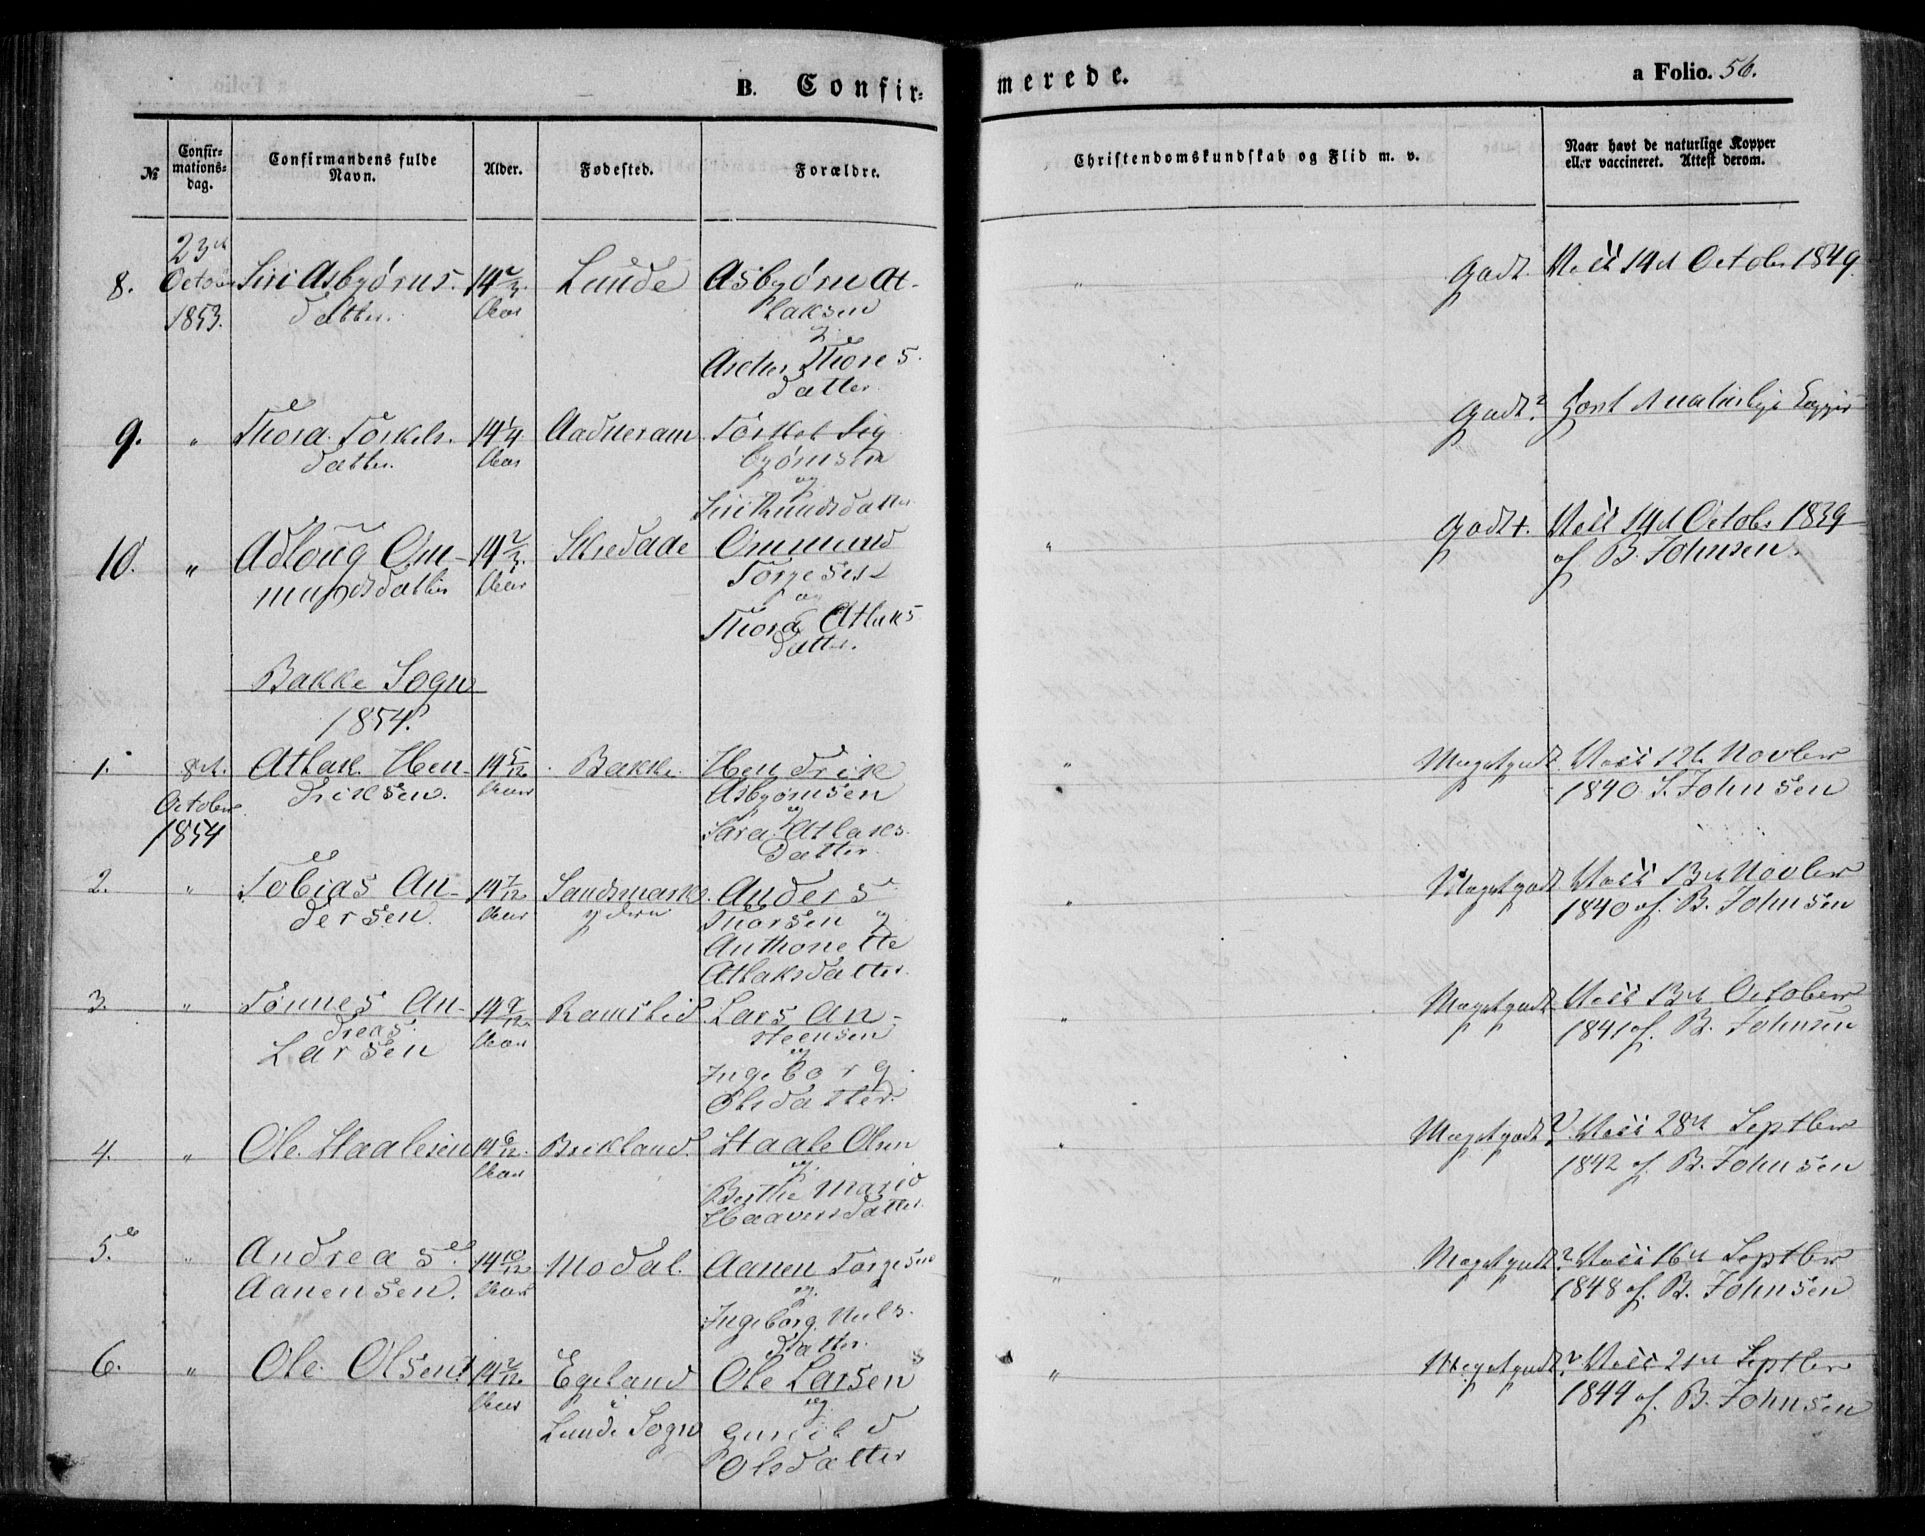 B. Confir=
merede.
a Folio. 56.
№
Confir=
mations=
dag.
Confirmandens fulde
Navn.
Alder.
Fødested.
Forældre.
Christendomskundskab og Flid m. v.
Naar havt de naturlige Kopper
eller vaccineret. Attest derom.
8.
23
October
1853.
Siri Asbjørns
datter.
14 2/3
Aar
Lunde
Asbjørn At-
laksen
Thores
datter
"
godt.
Vacc 14d October 1849.
9.
"
Thora Torkels
datter.
14 1/4
Aar
Aadneram
Torkel Sig
bjørnsen
og
Siri Knudsdatter
godt?
havt d naturlige Kopper
10.
"
Adloug Om-
mundsdatter
14 2/3
Aar
Skredaae
Ommund
Torgesen
og
Thora Atlaks
datter.
"
godt+.
Vacc 14d October 1839
af B. Johnsen.
Bakke Sogn
1854.
1.
8d
October
1854
Atlak Hen-
driksen.
14 5/12
Aar
Bakke
Hendrik
Asbjørnsen
og
Sara Atlaks
datter.
"
Megetgodt.
Vacc 12t Novber
1840 S. Johnsen
2.
"
Tobias An-
dersen.
14 7/12
Aar
Sandsmark
ydere
Anders
Thorsen og
Anthonette
Atlaksdatter
"
Megetgodt
Vacc 13d Novber
1840 af. B. Johnsen
3.
"
Tønnes An-
dreas
Larsen
14 9/12
Aar
Ramslid
Lars An-
steensen
og
Ingeborg
Olsdatter.
"
Megetgodt
Vacc 13d October
1841 af B. Johnsen
4.
"
Ole Haalesen
14 6/12
Aar
Birkland.
Haale Olsen
og
Berthe Maria
Haaversdatter
"
Megetgodt?
Vacc 28d Septber
1842 af B. Johnsen
5.
"
Andreas
Aanensen.
14 10/12
Aar
Modal.
Aanen Torgesen
og
Ingeborg Nils
datter.
"
Megetgodt?
Vacc 16d Septber
1848 af. B. Johnsen
6.
"
Ole Olsen
14 2/12
Aar
Egeland
i
Lunde Sogn
Ole Larsen
og
Gunild
Olsdatter
"
Megetgodt?
Vacc 21d Septber
1844 af B. Johnsen